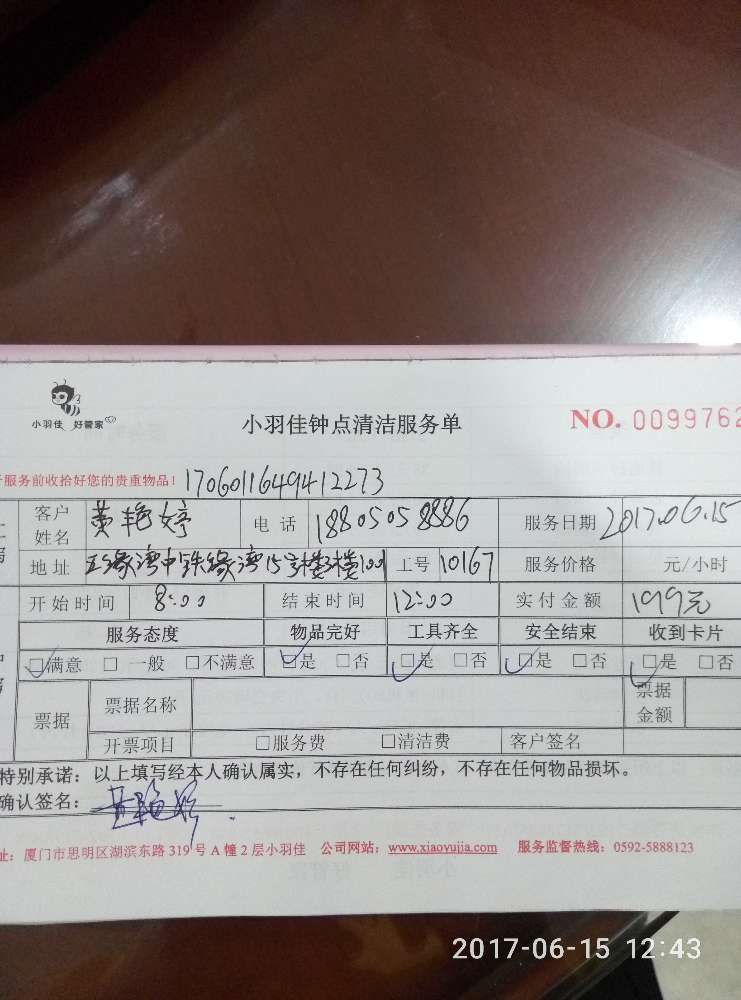 小羽佳 好管家
小羽佳钟点清洁服务单
NO. 0099762
服务前收拾好您的贵重物品! 1706011649412273
客户姓名 黄艳婷 电话 18805058886 服务日期 2017.06.15
地址 五缘湾中铁缘湾15号楼 工号 10167 服务价格 元/小时
开始时间 8:00 结束时间 12:00 实付金额 199元
服务态度 物品完好 工具齐全 安全结束 收到卡片
☑满意 □ 一般 □不满意 ☑是 □否 ☑是 □否 ☑是 □否 ☑是 □否
票据 票据名称 票据金额
开票项目 □服务费 □清洁费 客户签名
特别承诺：以上填写经本人确认属实，不存在任何纠纷，不存在任何物品损坏。
确认签名：黄艳婷
址：厦门市思明区湖滨东路 319 号 A 幢 2 层小羽佳 公司网站：www.xiaoyujia.com 服务监督热线：0592-5888123
2017-06-15 12:43